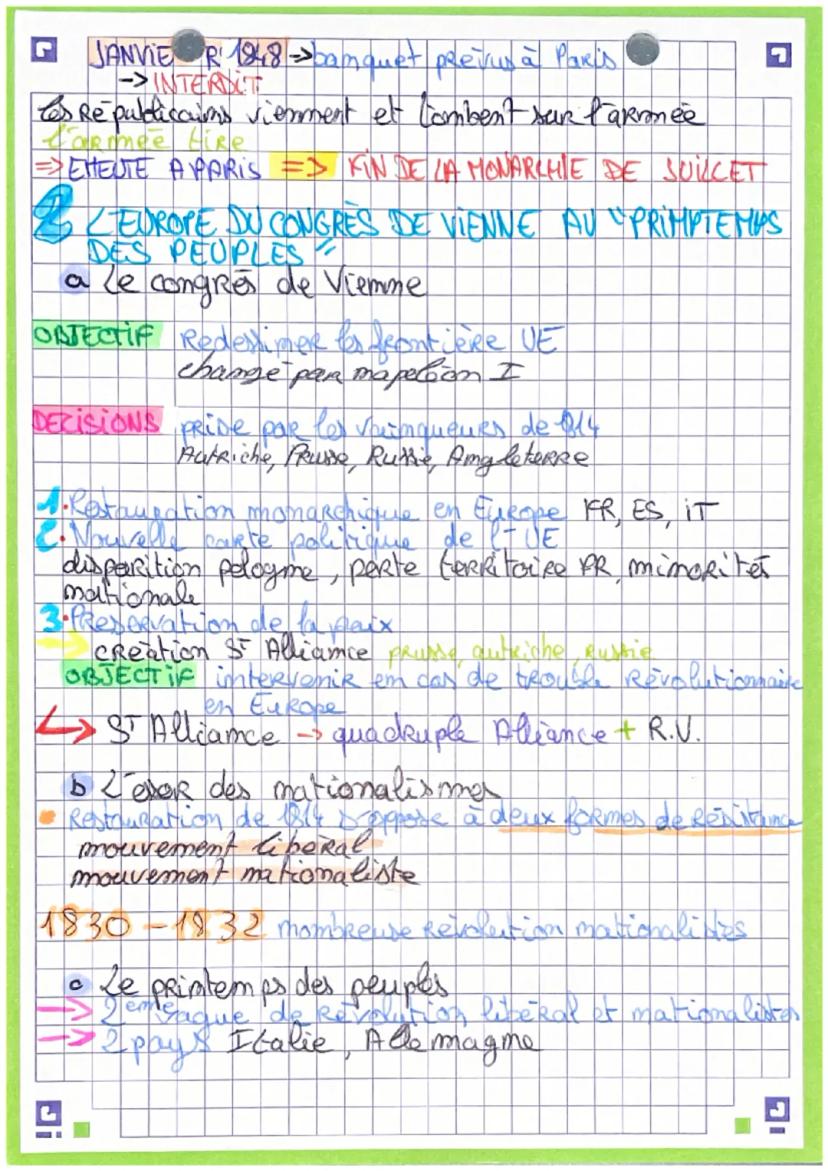 JANVIER 1848 → banquet prévus à Paris
→ INTERDIT
les Républicains viennent et tombent sur l'armée
l'armée tire
⇒ EMEUTE A PARIS ⇒ FIN DE LA MONARCHIE DE JUILLET
2 L'EUROPE DU CONGRÈS DE VIENNE AU "PRIMPTEMPS
DES PEUPLES"
a Le congrès de Vienne
OBJECTIF Redessiner les frontière UE
changé par napoléon I
DECISIONS prise par les vainqueurs de 1814
Autriche, Prusse, Russie, Angleterre
1. Restauration monarchique en Europe FR, ES, iT
2. Nouvelle carte politique de l'UE
disparition pologne, perte territoire FR, minorités
nationale
3. Préservation de la paix
→ création St Alliance prusse, autriche, Russie
OBJECTIF intervenir en cas de trouble révolutionnaire
en Europe
↳ ST Alliance → quadruple Alliance + R.V.
b L'esor des nationalismes
• Restauration de 1814 s'oppose à deux formes de résistance
mouvement libéral
mouvement nationaliste
1830 - 1832 nombreuse révolution nationalistes
c Le printemps des peuples
→ 2ème vague de révolution libéral et nationalistes
→ 2 pays Italie, Allemagne